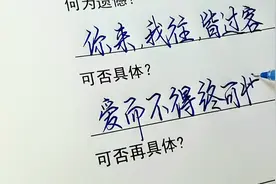 何为遗憾?
你来,我往,皆过客
可否具体?
爱而不得终可
可否再具体?